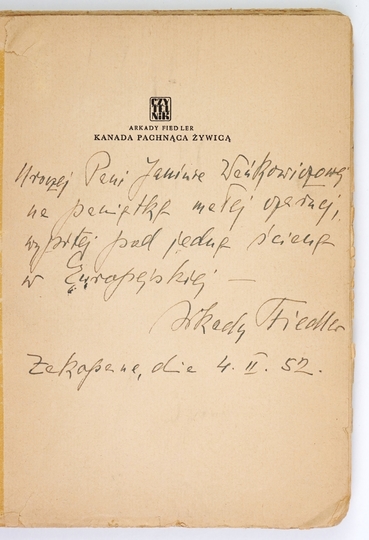 CZY
TEL
NIK
ARKADY FIEDLER
KANADA PACHNĄCA ŻYWICĄ
Uroczej Pani Janinie Wańkowiczowej
na pamiątkę małej czarnej,
wypitej pod jedną ścianą
w Europejskiej —
Arkady Fiedler
Zakopane, dia 4. II. 52.